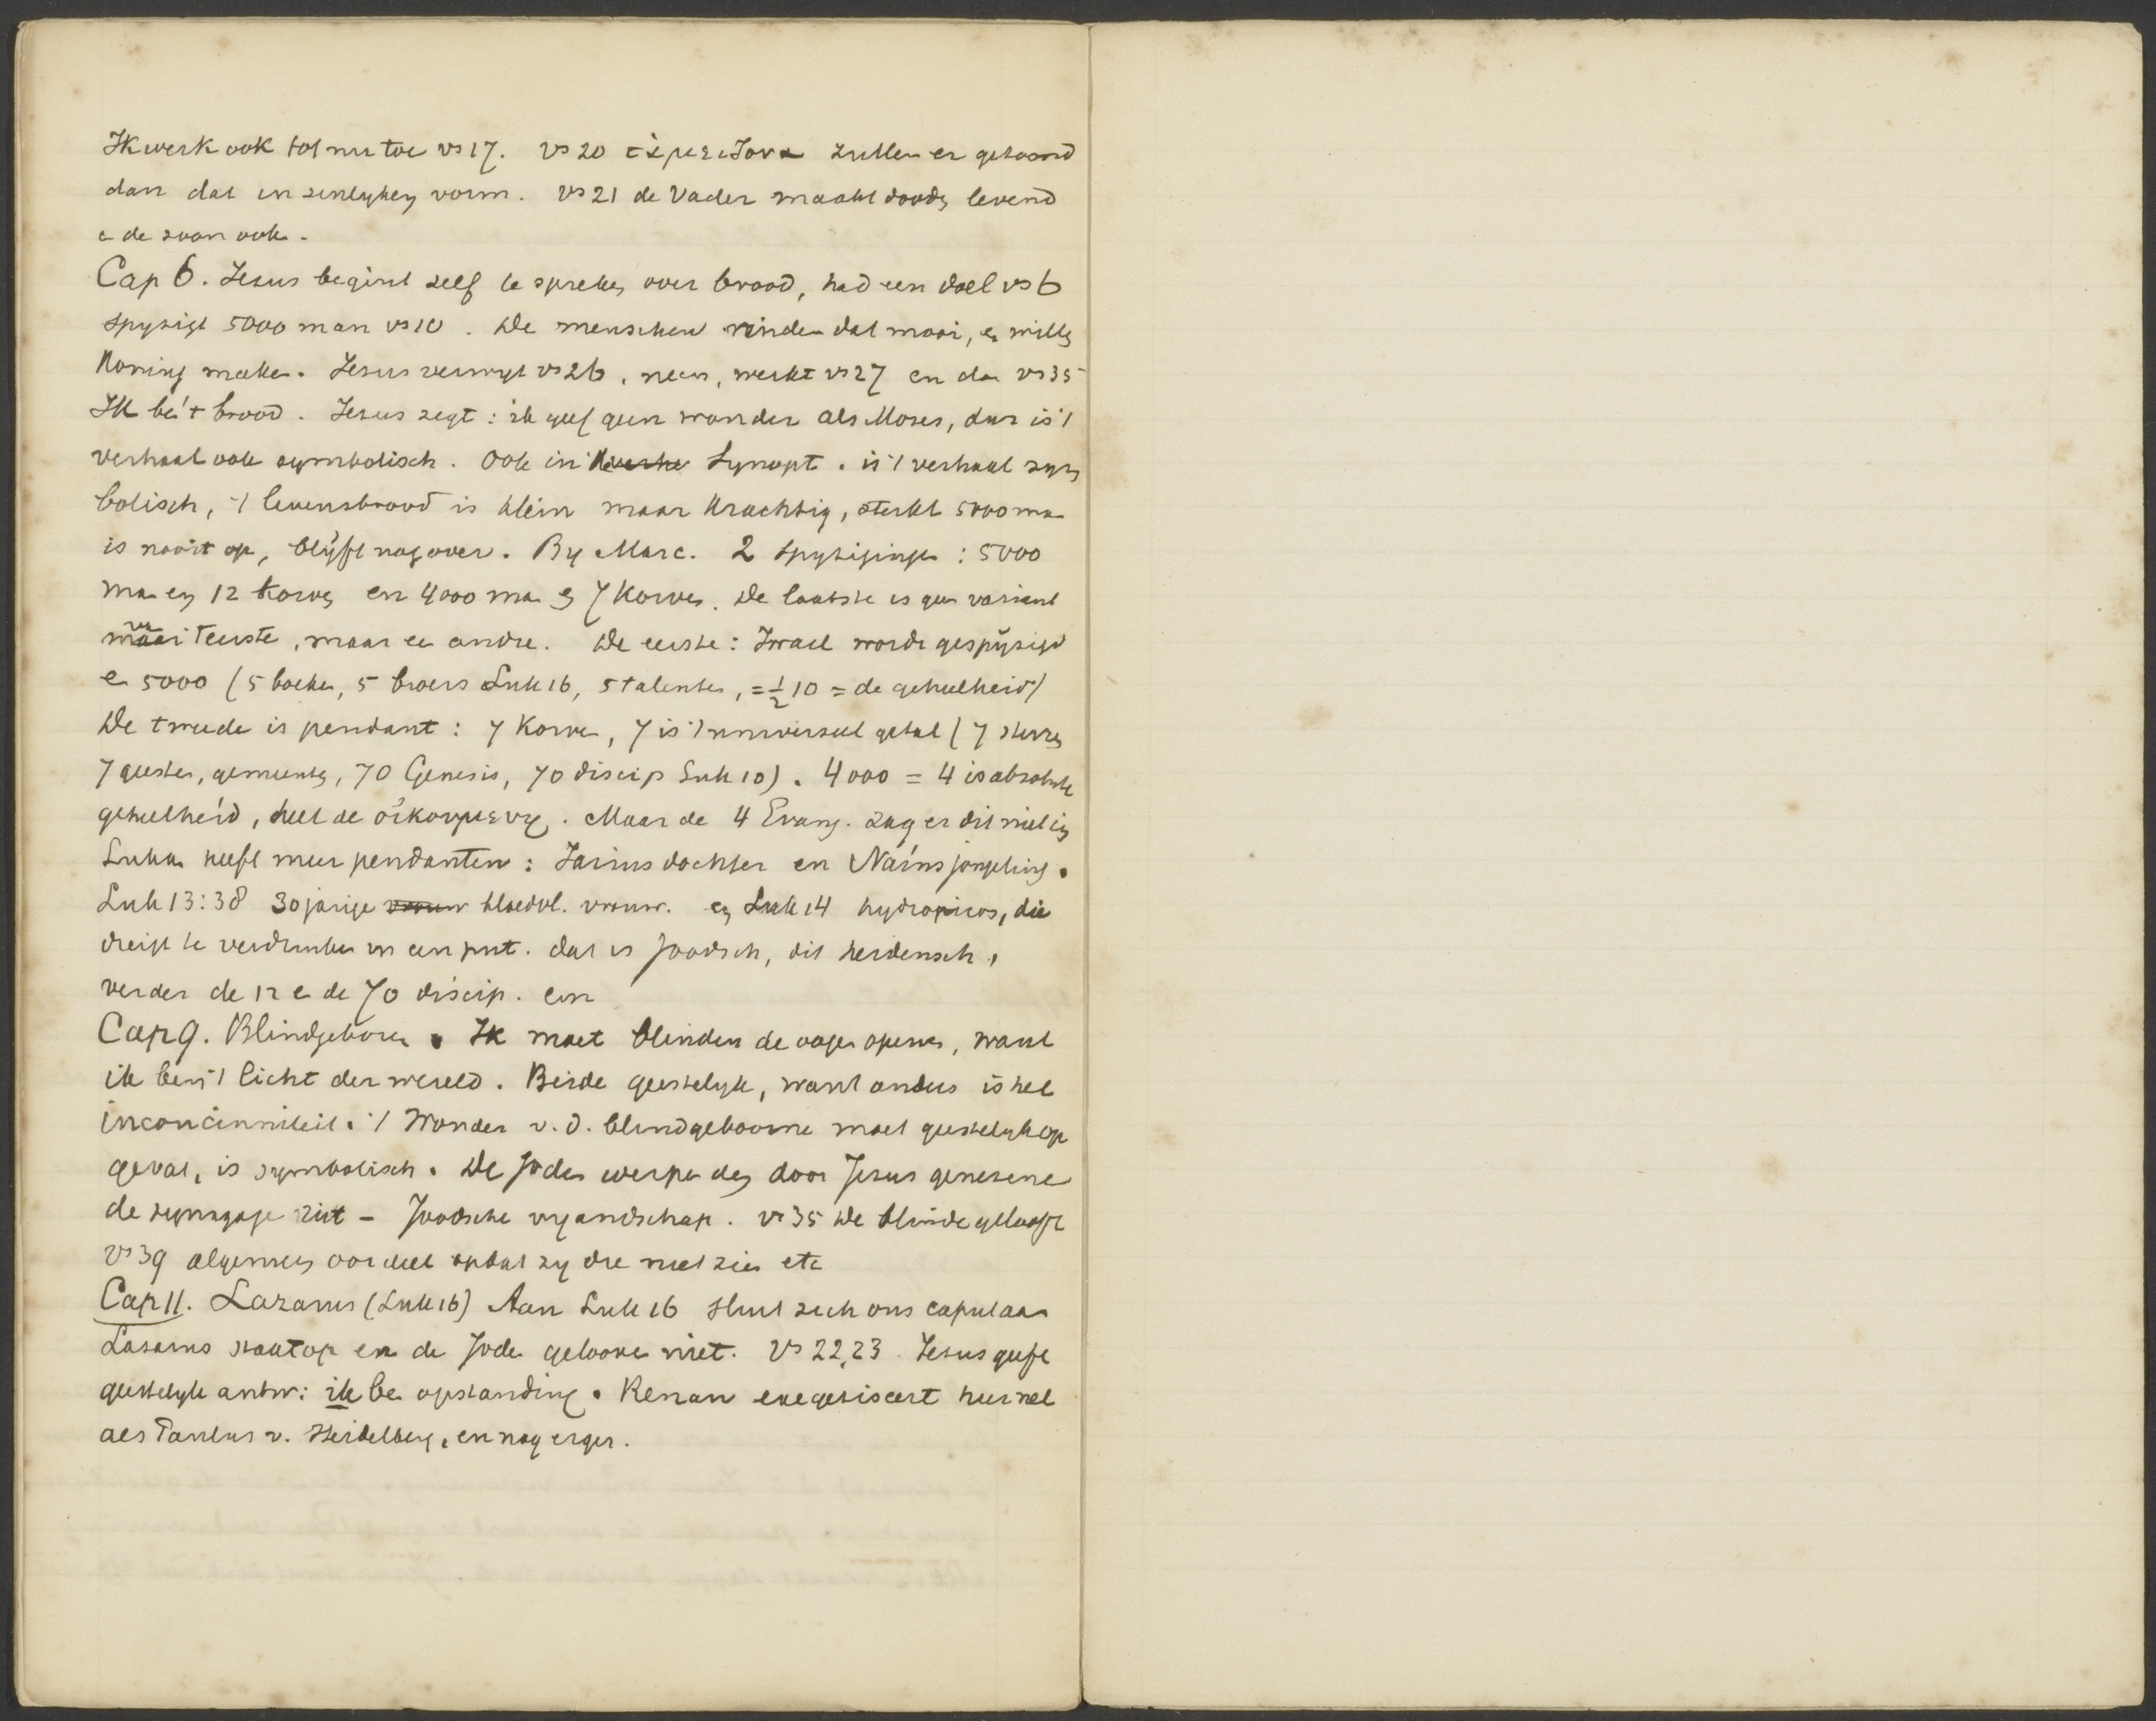 Ik werk ook tot nu toe vs 17. vs 20 zullen er getoond
dan dat in zinlyken vorm. vs 21 de Vader maakt dooden levend
e de zoon ook.
Cap 6. Jesus begint zelf te spreken over brood, had een doel vs 6
spysigt 5000 man vs 10. De menschen vinden dat mooi, en willen
Koning maken. Jesus verwyt vs 26, neen, werkt vs 27 en dan vs 35
Ik ben 't brood. Jesus zegt: ik geef geen wonder als Moses, dus is 't
verhaal ook symbolisch. Ook in Synopt. is 't verhaal sym
bolisch, 't levensbrood is klein maar krachtig, sterkt 5000 man
is nooit op, blyft nog over. By Marc. 2 spysigingen: 5000
man en 12 korven en 4000 man en 7 korven. De laatste is geen variant
van 't eerste, maar een andre. De eerste: Israel wordt gespysigd
en 5000 (5 boeken, 5 broers Luk 16, 5 talenten, = ½ 10 = de geheelheid)
De tweede is pendant: 7 korven, 7 is 't universeel getal (7 sterren
7 geesten, gemeenten, 70 Genesis, 70 discip Luk 10). 4000 = 4 is absolute
geheelheid, heel de οἰκουμενη. Maar de 4 Evang. zag er dit niet in
Lukas heeft meer pendanten: Jaïrus dochter en Naïns jongeling.
Luk 13:38 30 jarige vrouw bloedvl. vrouw. en Luk 14 hydropicos, die
dreigt te verdrinken in een put. dat is Joodsch, dit heidensch,
verder de 12 e de 70 discip. een
Cap 9. Blindgeboren. Ik moet blinden de oogen openen, want
ik ben 't licht der wereld. Beide geestelyk, want anders is het
inconcinniteit. 't Wonder v. d. blindgeboorne moet geestelyk op
gevat, is symbolisch. De Joden werpen den door Jesus genesene
de synagoge uit – Joodsche vyandschap. vs 35 de blinde gelooft
vs 39 algemeen oordeel opdat zy die niet zien etc
Cap 11. Lazarus (Luk 16) Aan Luk 16 sluit zich ons caput aan
Lasarus staat op en de Joden gelooven niet. vs 22,23. Jesus geeft
geestelyk antw: ik ben opstanding. Renan exegetiseert hier net
als Paulus v. Heidelberg, en nog erger.